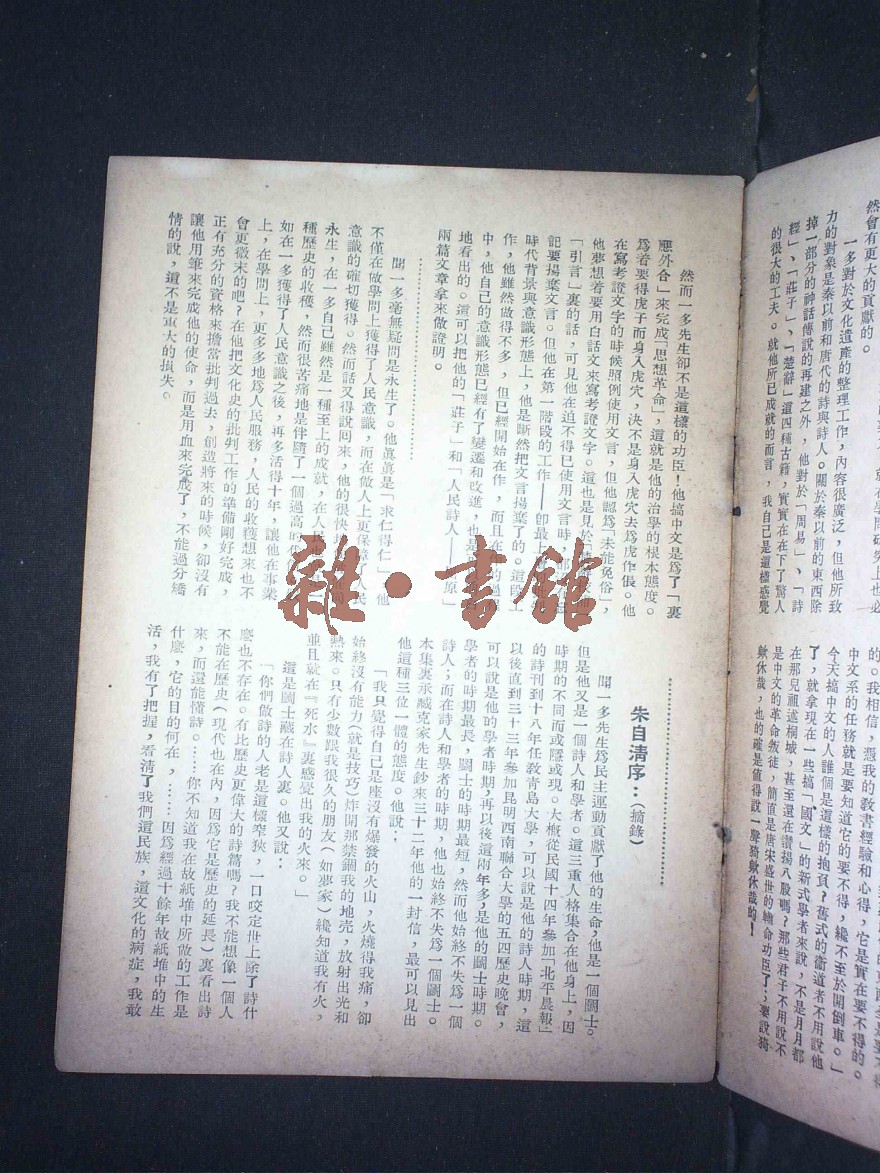 然會有更大的貢獻的。
一多對於文化遺產的整理工作，內容很廣泛，但他所致
力的對象是秦以前和唐代的詩與詩人。關於秦以前的東西除
掉一部分的神話傳說的再建之外，他對於「周易」、「詩
經」、「莊子」、「楚辭」這四種古籍，實實在在下了驚人
的很大的工夫。就他所已成就的而言，我自己是這樣感覺
的。我相信，憑我的教書經驗和心得，它是實在要不得的。
中文系的任務就是要知道它的要不得，纔不至於開倒車。」
今天搞中文的人誰個是這樣的抱負？舊式的衞道者不用說他
了，就拿現在一些搞「國文」的新式學者來說，不是月月都
在那兒祖述桐城，甚至還在讚揚八股嗎？那些君子不用說不
是中文的革命叛徒，簡直是唐宋盛世的輔命功臣了；要說猗
歟休哉，也的確是值得說一聲猗歟休哉的！
然而一多先生卻不是這樣的功臣！他搞中文是爲了「裏
應外合」來完成「思想革命」，這就是他的治學的根本態度。
爲着要得虎子而身入虎穴，決不是身入虎穴去爲虎作倀。他
在寫考證文字的時候照例使用文言，但他認爲「未能免俗」，
他夢想着要用白話文來寫考證文字。這也是見於
「引言」裏的話，可見他在迫不得已使用文言時，
記要揚棄文言。但他在第一階段的工作——卽最上
時代背景與意識形態上，他是斷然把文言揚棄了的。這
作，他雖然做得不多，但已經開始在作，而且在
中，他自己的意識形態已經有了變遷和改進，也是
地看出的。這可以把他的「莊子」和「人民詩人——屈原」
兩篇文章拿來做證明。
………………………………
聞一多毫無疑問是永生了。他眞眞是「求仁得仁」，他
不僅在做學問上獲得了人民意識，而在做人上更保障了人民
意識的確切獲得。然而話又得說回來，他的很快
永生，在一多自己雖然是一種至上的成就，在人民
種歷史的收穫，然而很苦痛地是伴隨了一個過高
如在一多獲得了人民意識之後，再多活得十年，讓他在事業
上，在學問上，更多多地爲人民服務，人民的收獲想來也不
會更微末的吧？在他把文化史的批判工作的準備剛好完成，
正有充分的資格來擔當批判過去，創造將來的時候，卻沒有
讓他用筆來完成他的使命，而是用血來完成了，不能過分矯
情的說，這不是重大的損失。
………………………………
朱自清序：（摘錄）
聞一多先生爲民主運動貢獻了他的生命，他是一個鬬士。
但是他又是一個詩人和學者。這三重人格集合在他身上，因
時期的不同而或隱或現。大槪從民國十四年參加「北平晨報」
的詩刊到十八年任敎靑島大學，可以說是他的詩人時期，這
以後直到三十三年參加昆明西南聯合大學的五四歷史晚會，
可以說是他的學者時期，再以後這兩年多，是他的鬬士時期。
學者的時期最長，鬬士的時期最短，然而他始終不失爲一個
詩人；而在詩人和學者的時期，他也始終不失爲一個鬬士。
本集裏承臧克家先生鈔來三十二年他的一封信，最可以見出
他這種三位一體的態度。他說：
「我只覺得自己是座沒有爆發的火山，火燒得我痛，卻
始終沒有能力（就是技巧）炸開那禁錮我的地殼，放射出光和
熱來。只有少數跟我很久的朋友（如夢家）纔知道我有火，
並且就在『死水』裏感覺出我的火來。」
這是鬬士藏在詩人裏。他又說：
「你們做詩的人老是這樣窄狹，一口咬定世上除了詩什
麽也不存在。有比歷史更偉大的詩篇嗎？我不能想像一個人
不能在歷史（現代也在內，因爲它是歷史的延長）裏看出詩
來，而還能懂詩。……你不知道我在故紙堆中所做的工作是
什麽，它的目的何在，……因爲經過十餘年故紙堆中的生
活，我有了把握，看清了我們這民族，這文化的病症，我敢
雜·書館